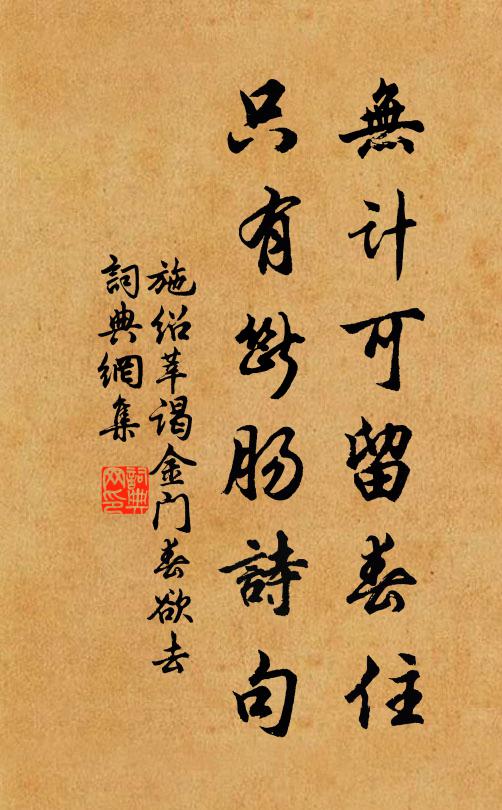 無计可留春住
只有断肠詩句
施绍莘谒金门春欲去
詞典網集
詞典網印